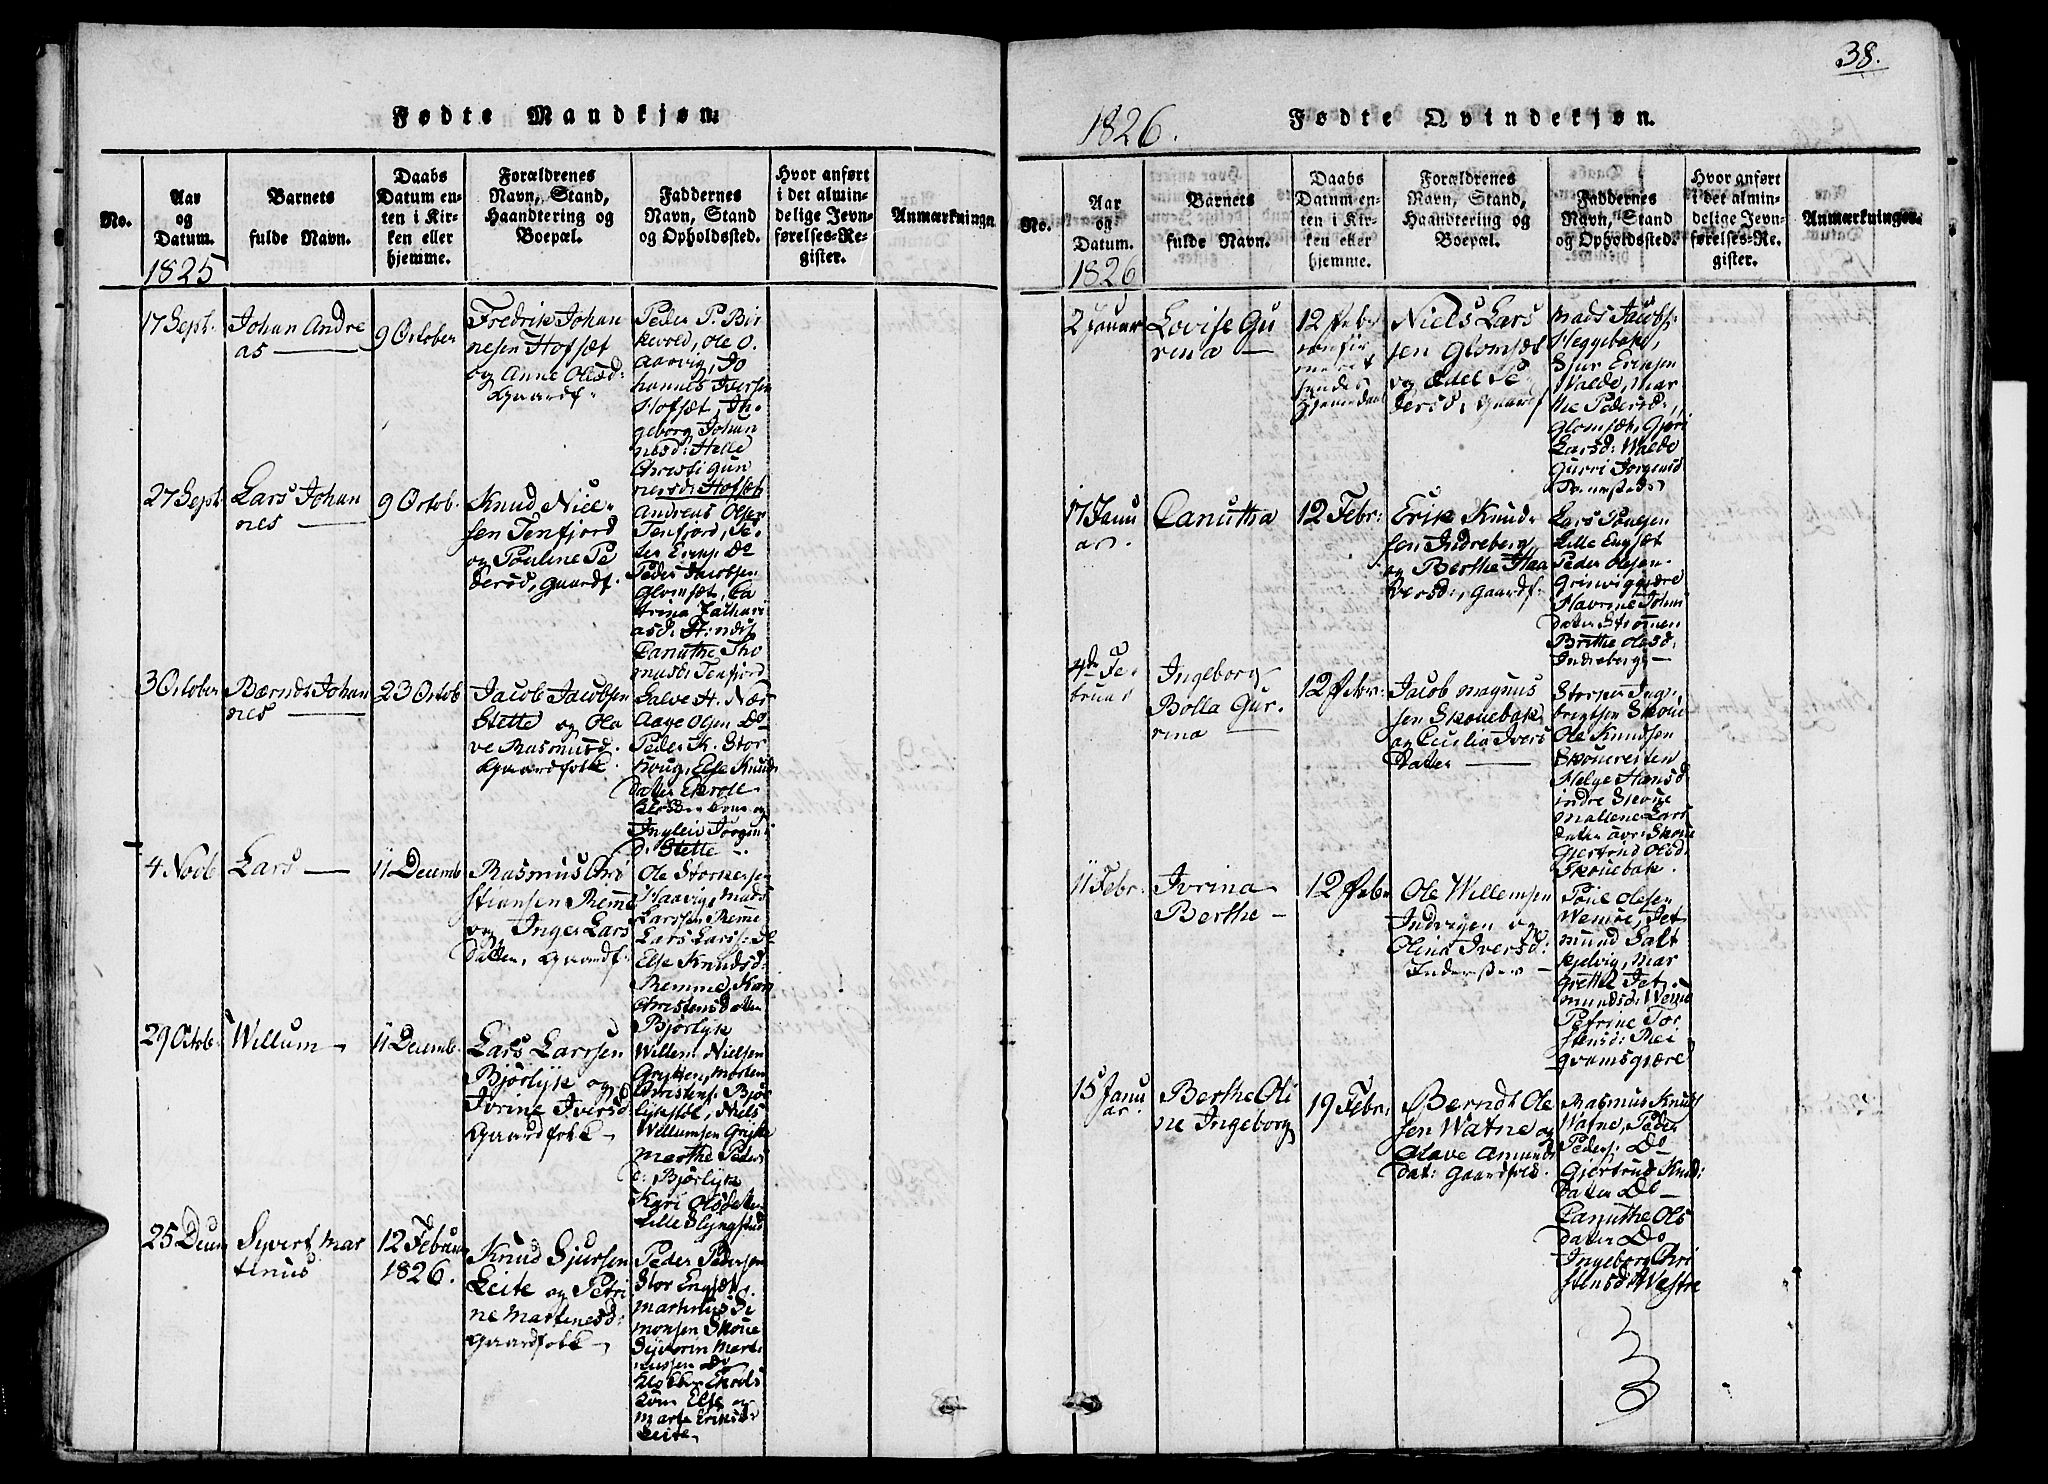 Fødte Mandkjøn.
No.
Aar
og
Datum.
1825
Barnets
fulde Navn.
Daabs
Datum en-
ten i Kir-
ken eller
hjemme.
Forældrenes
Navn, Stand,
Haandtering og
Boepæl.
Faddernes
Navn, Stand
og Opholdssted.
Hvor anført
i det almin-
delige Jevn-
førelses-Re-
gister.
Anmærkninge
17 Sept.
Johan Andre
as
9 October
Fredrik Johan
nesen Hofset
og Anne Olesd:
Gaardf.
Peder P. Bir
kevold, Ole O.
Aarvig, Jo
hannes Iversen
Hofsæt, In-
geborg Johan
nesd: Helle
Christi Gun
nersd: Hofset
27 Sept
Lars Johan
nes
9 Octob.
Knud Niel-
sen Tenfjord
og Pouline Pe
dersd, Gaardf.
Andreas Olsen
Tenfjord, Pe-
der Do
Peder Jacobsen
Glomsæt, Ca
trina Zachari
asd:
Canuthe Tho
masd: Tenfjord
3 October
Bærndt Johan
nes
23 Octob
Jacob Jacobsen
Stette og Ola
ve Rasmusd.
Gaardfolk.
Salve H. Næs
Aage Olsen Do
Peder K. Stor
houg, Else Knuds
Dater Ekrole
og
Jngleiv Jørgens
d: Stette
4 Novb
Lars
11 Decemb
Rasmus Chri
stiansen Remme
og Inger Lars
Datter, Gaardf.
Ole Storkersen
Haavig, Mads
Larssen Reme
Lars Larss: Do
Else Knudsd:
Remme, Kari
Christensdatter
Bjørlyk
29 Octob.
Willum
11 Decemb.
Lars Larssen
Bjørlyk og
Ivrine Iversd
Gaardfolk
Willem Nielsen
Grytten, Morten
Christens: Bjør
lyksløt, Niels
Willumsen Grytte
Marthe Peders
d: Bjørlyk
Kari Olsdatter
Lille Slyngstad
25 Decem
Syvert Mar
tinus
12 Februar
1826.
Knud Sjursen
Leite og Petri
ne Martinesd:
Gaardfolk
Peder Pedersen
Stor Engsæt
Martinus Si
monsen Skoue
Syverin Marti
nussen Do
Klokker Ekrols
Kone Else og
Marte Eriksd:
Leite
38.
1826.
Fødte Qvindekjøn.
No.
Aar
og
Datum.
1826
Barnets
fulde Navn.
Daabs
Datum en-
ten i Kir-
ken eller
hjemme.
Forældrenes
Navn, Stand,
Haandtering og
Boepæl.
Faddernes
Navn, Stand
og Opholdssted.
Hvor anført
i det almin-
delige Jevn-
førelses-Re-
gister.
Anmærkninger.
2 Januar
Lovise Gu
rina
12 Febr
confir
meret
hendes
Hjemedaab
Niels Lars
sen Glomsæt
og Edel Pe
dersd, Gaardf
Mads Jacobs:
Heggebak,
Sjur Ericsen
Walde, Mar
the Pedersd:
Glomsæt, Gjøri
Larsd: Walde
Gurri Jørgensd
17 Janu
ar.
Canutha
12 Febr:
Erik Knud-
sen Indreberg
og Berthe Haa
versd:, Gaardf.
Lars Poulsen
Lille Engsæt
Peder Olesen
Grinviggjære
Havrine Johns
Dater Strømen
Brithe Olesd:
Indreberg
4de Fe-
bruar
Ingeborg
Bolla Gur-
rina
12 Febr:
Jacob Magnus
sen Skouebak
og Cicilia Ivers
Datter
Storker Ing-
brigtsen Skoue
Ole Knudsen
Skouereiten
Helge Hansd
indre Skoue
Mallene Lars
dater øvr: Skoue
Gjertrud Olsd:
Skouebak.
11 Febr:
Ivrina
Berthe
12 Febr
Ole Willemsen
Indvigen og
Olina Iversd:
Poul Olesen
Wemøe, Jet
mund Salt
kjelvig, Mar
grethe Jet-
mundsd: Wemøe
Petrine Tor
stensd: Rei
qvamsgjære
15 Janu
ar.
Berthe Oli
ne Ingeborg
19 Febr:
Berndt Ole
sen Watne og
Olave Amunds
Dat: Gaardfold.
Rasmus Knuds
Watne, Peder
Peders: Do
Gjertrud Knuds:
Dater Do
Canuthe Ols
Dater Do
Ingeborg Chri
stensd: Westre